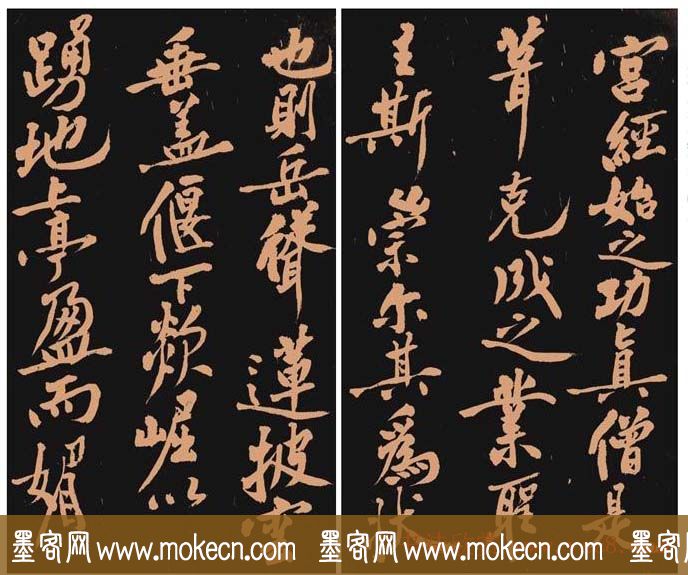 宮經始之功真僧是
葺克成之業聖
主斯崇尔其為狀
也則岳聳蓮披雲
垂盖偃下欻崛以
踴地上亭盈而媚
墨客网 www.mokecn.com 墨客网 www.mokecn.com